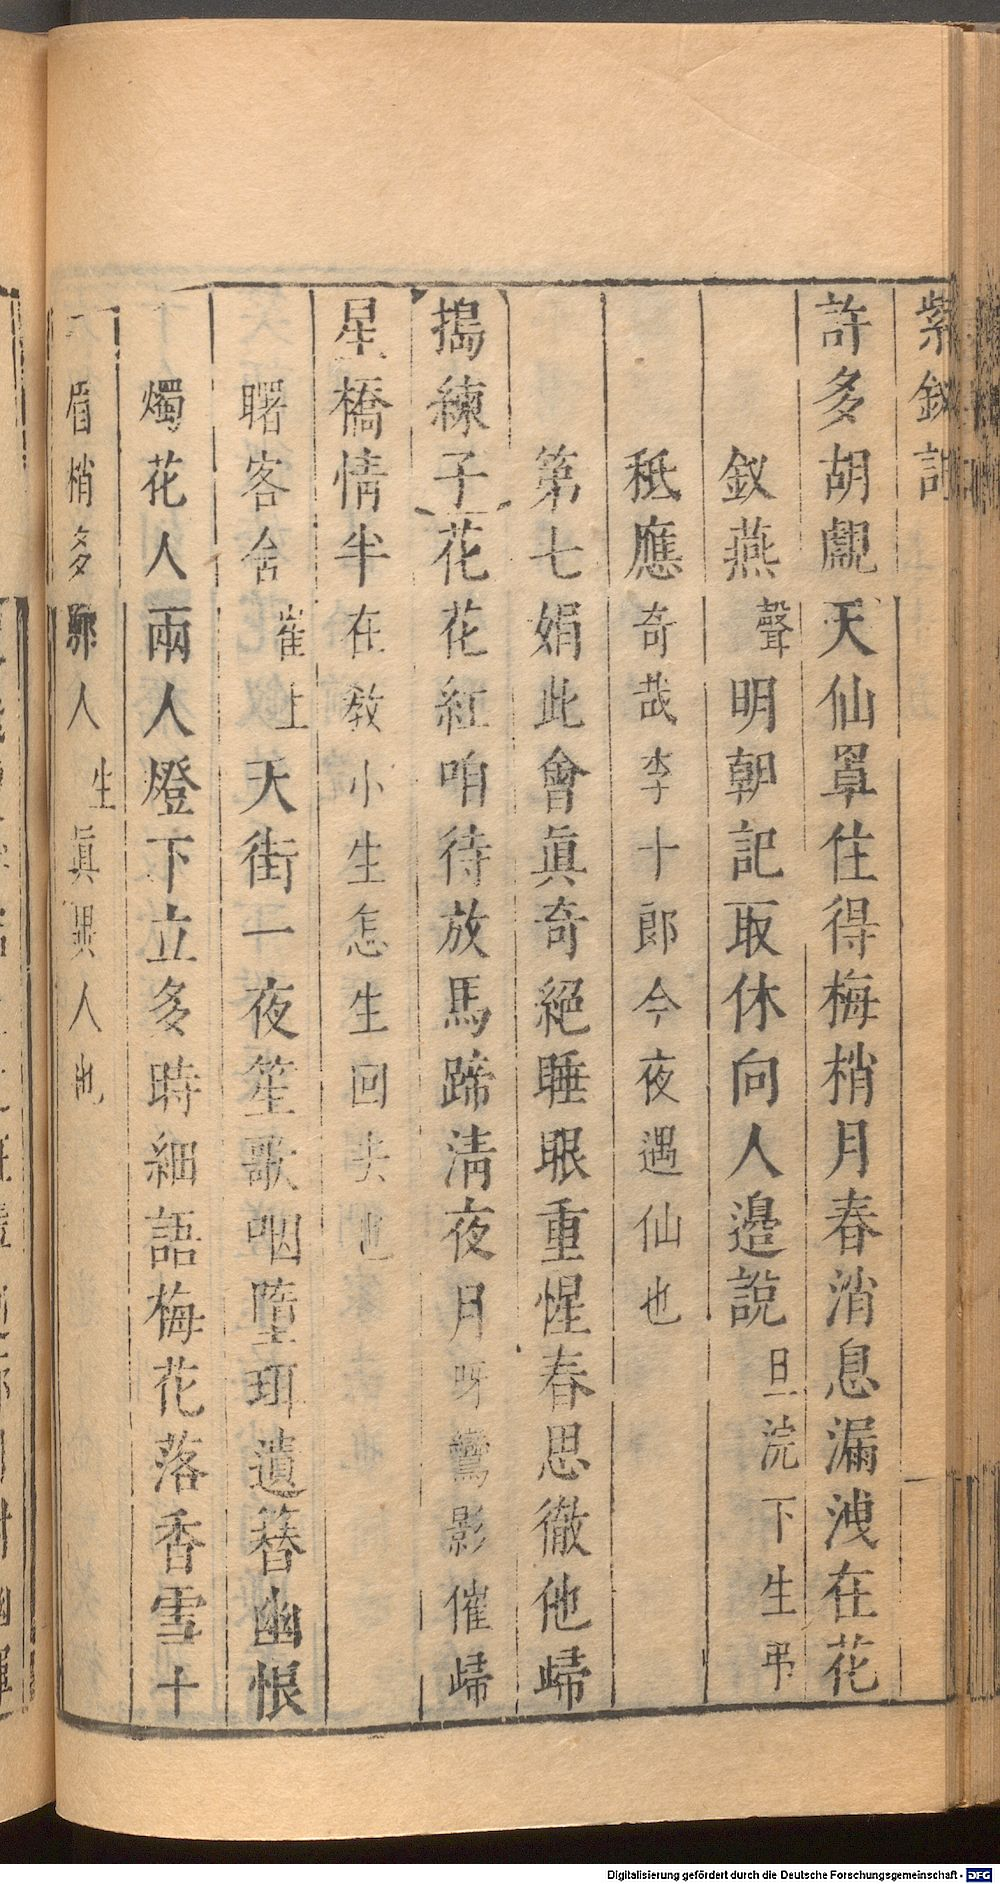 紫釵記
許多胡覷天仙罩住得梅梢月春消息漏洩在花
釵燕聲明朝記取休向人邉說旦浣下生弔
秪應奇哉李十郎今夜遇仙也
第七娟此會眞奇絕睡眼重惺春思徹他歸
搗練子花花紅咱待放馬蹄淸夜月呀鸞影催歸
星橋情半在教小生怎生回去也
曙客舍崔上天街一夜笙歌咽墮珥遺簪幽恨
燭花人兩人燈下立多時細語梅花落香雪十
眉梢多
人生眞異人也
Digitalisierung gefördert durch die Deutsche Forschungsgemeinschaft - DFG